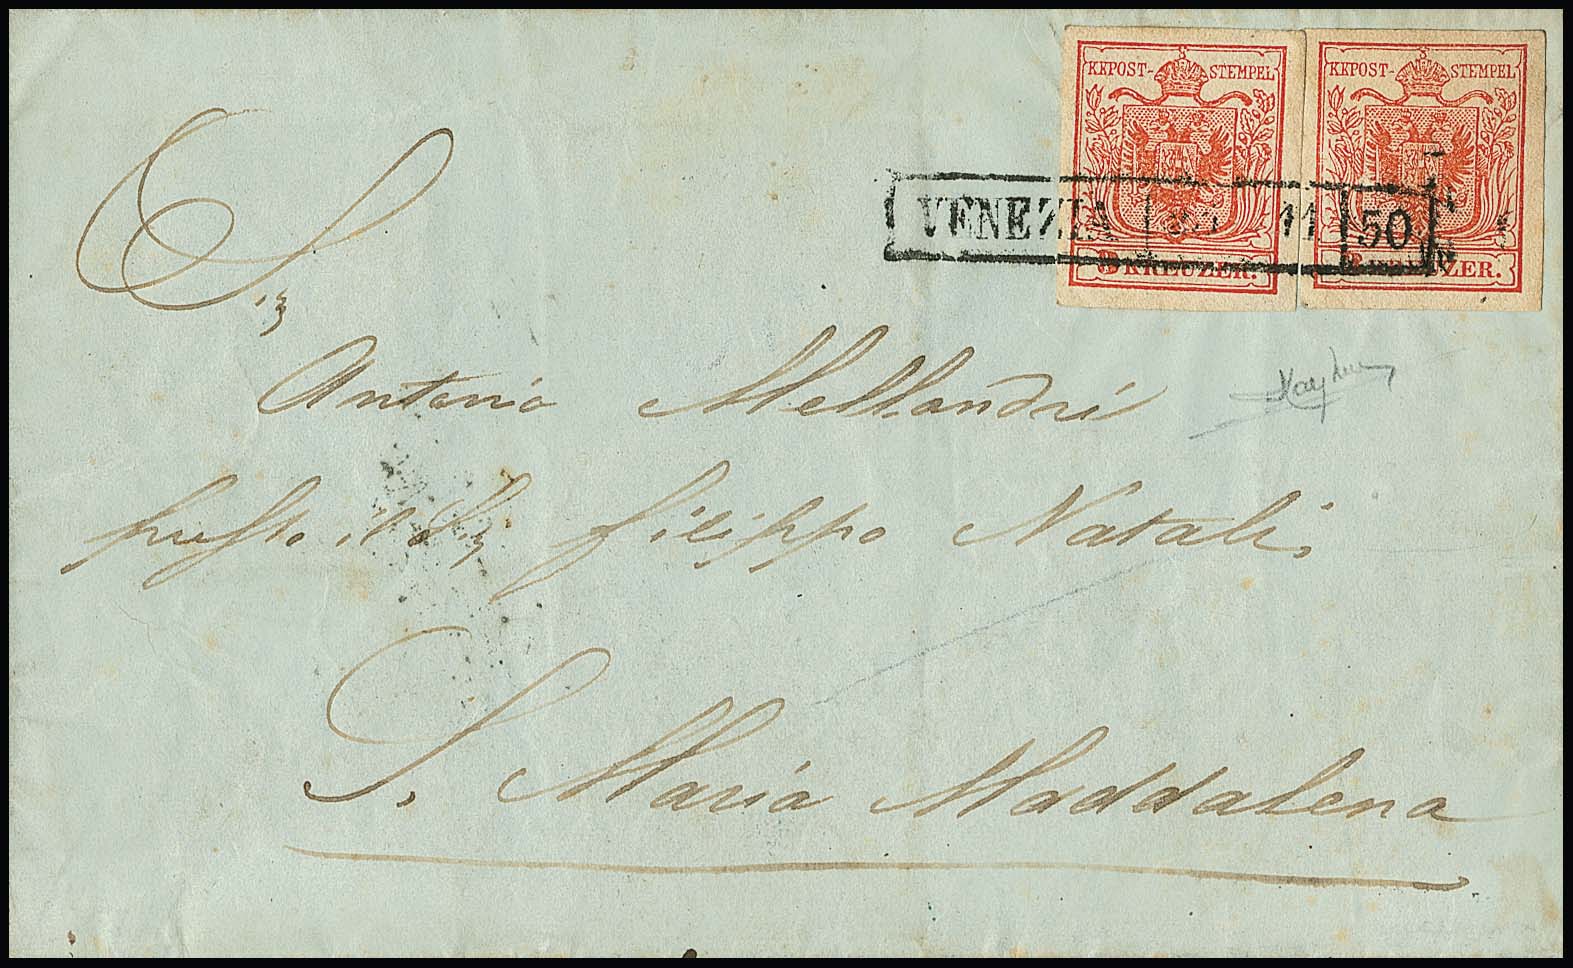 KKPOST-STEMPEL KKPOST-STEMPEL
VENEZIA 11 50
3 KREUZER. KREUZER.
Sig
Antonio Mellandri
presso il Sig Filippo Natali
S. Maria Maddalena